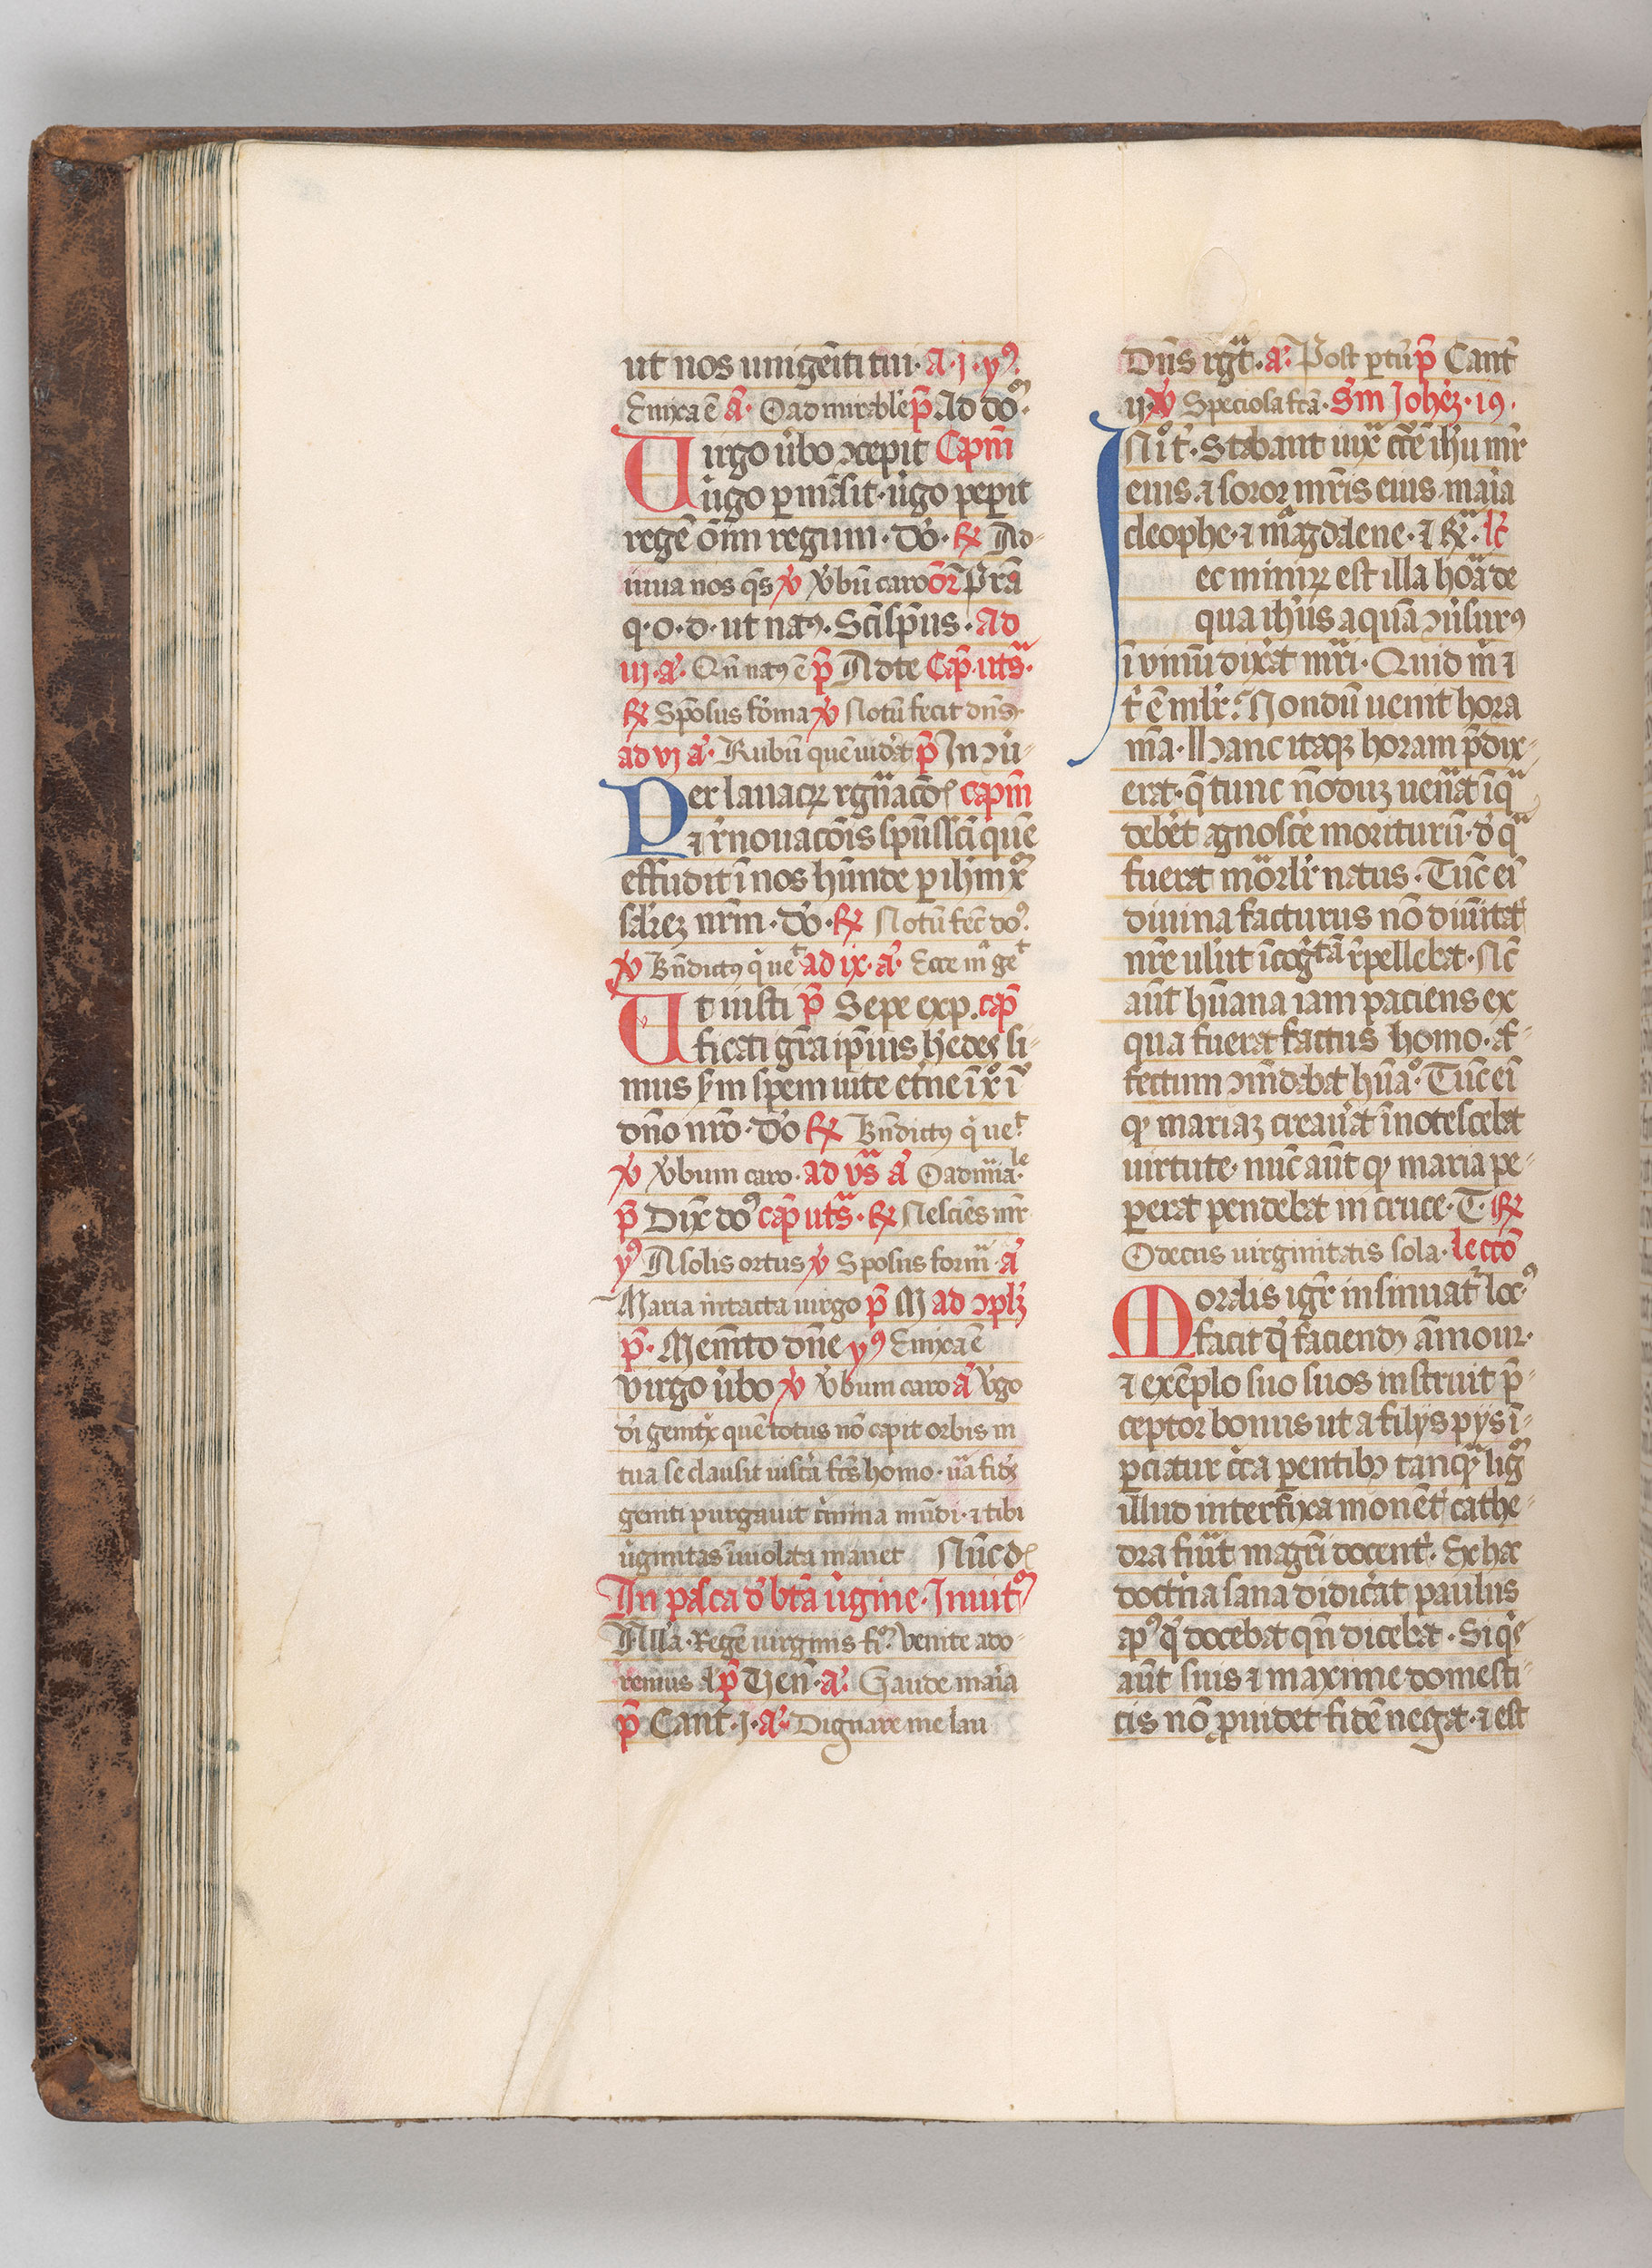 ut nos unigēiti tui. A. J. yꝰ
Enixa ē ā. O admirable p̄ Ad dō
Virgo ūbo ɔcepit Capm̄
ūgo ꝑmāsit. ūgo peꝑit
regē oīm regum. dō. ℟ Ad-
iuua nos q̄s ℣ ℣bū caro or̄ p̄ra
q. o. d. ut natꝰ. Scīsp̄us. Ad
iij. ā. Qn̄ natꝰ ē p̄ Ad te Cap̄. uts.
℟ Spōsus foma ℣ Notū fecit dn̄s.
ad vj ā. Rubū quē uidat p̄ In ɔū-
Per lauacꝝ rgn̄acōs capm̄
⁊ rnouacōis sp̄ussci quē
effudit ī nos hūnde ꝑ ihm xp̄
salrēz nrm. dō. ℟ Notū fec̄ do.
℣ Bn̄dictꝰ q ueᵗ ad ix. ā. Ecce m̄ geᵗ
Vt iusti p̄ Sepe exp. cap̄
ficati gr̄a ip̄ius hēdes si-
mus sm spem uite etne ī xo ī
dno nrō. dō ℟ Bn̄dictꝰ q ueᵗ
℣ ℣bum caro. ad vs̄ ā O admiaˡᵉ
p̄ Dix̄ doꝰ cap̄ uts. ℟ Nesciēs mr̄
yꝰ A solis ortus ℣ Sposus form̄ ā
Maria intacta uirgo p̄ M ad ɔplʒ
p̄. Memēto dn̄e yꝰ Enixa ē
virgo ūbo ℣ ℣bum caro ā ℣go
dī genitx̄ quē totus nō capit orbis in
tua se clausit uiscā fcs̄ homo. ūa fides
geniti purgauit cīmina mūdi. ⁊ tibi
ūginitas īuiolata manet Nūc d.
In pasca d̄ btā ūgine. Inuitᵒ
Allā. Regē uirginis fi. Venite ado-
remus a p̄ Uen̄. ā. Gaude maīa
p̄ Cant̄. j. ā. Dignare me lau
Dn̄s rgt. ā. Post ꝑtū p̄ Cant̄
ij. ℣ Speciosa fcā. Sm Johēz. 19.
In i t̄. Stabant iux̄ cc̄ē ihu mr̄
eius. ⁊ soror mr̄is eius maīa
cleophe. ⁊ maḡdalene. ⁊ ℟. lc̄
ec nimiꝝ est illa hora de
qua ihūs aquā ɔūsurꝰ
ī vinū dixāt mr̄i. Quid m̄ ⁊
t̄ ē mlr̄. Nondū uenit hora
m̄a. Hanc itaqꝫ horam p̄dix-
erat. q̄ tunc nōduz uenāt ī q̄
debet agnoscē moriturū. d̄ q̄
fuerat mor̄lr̄ natus. Tūc eī
diuina facturus nō diuītat
nr̄e ulut īcogtā rpellebat. Nc̄
aūt hūana iam paciens ex
qua fuerat factus homo. af-
fectum ɔm̄dabat hūaᵒ. Tūc eī
qꝫ mariaz creauāt īnotescebat
uirtute. nūc aūt qꝫ maria pe-
ꝑerat pendebat in cruce. T. ℟
O decus uirginitatis sola. leccō
Moralis igr̄ insinuat locꝰ
facit qd̄ faciendꝫ āmour.
⁊ exēplo suo suos instruit p̄-
ceptor bonus ut a filys pys ī-
ꝑciatur cc̄a ꝑentibꝫ tanqꝫ lig̅
illud inter fixa monēt cathe-
dra fiūt magr̄i docent̄. Ex hac
doctīna sana didicāt paulus
apꝰ qd̄ docebat qn̄ dicebat. Si q̄s
aūt suis ⁊ maxime domesti-
cis nō ꝓuidet fidē negat. ⁊ est